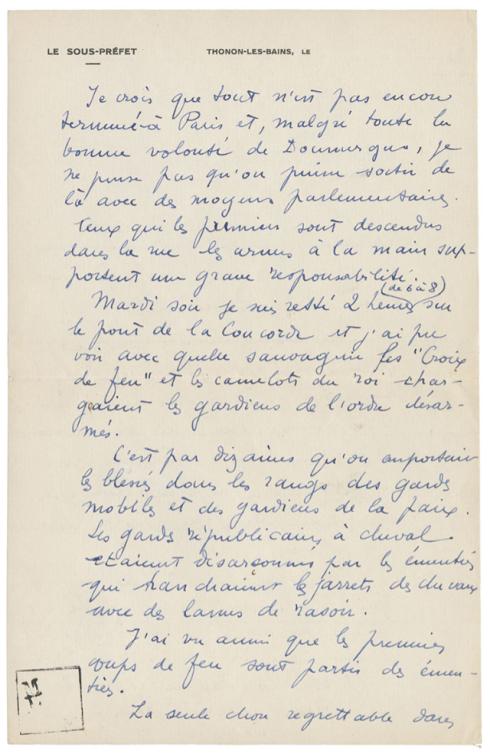 LE SOUS-PRÉFET THONON-LES-BAINS, LE
Je crois que tout n'est pas encore
terminé à Paris et, malgré toute la
bonne volonté de Doumergue, je
ne pense pas qu'on puisse sortir de
là avec des moyens parlementaires.
Ceux qui les premiers sont descendus
dans la rue les armes à la main sup-
portent une grave responsabilité.
Mardi soir je suis resté 2 heures (de 6 à 8) sur
le pont de la Concorde et j'ai pu
voir avec quelle sauvagerie les "Croix
de feu" et les camelots du roi char-
geaient les gardiens de l'ordre désar-
més.
C'est par dizaines qu'on emportait
les blessés dans les rangs des gardes
mobiles et des gardiens de la paix.
Les gardes républicains à cheval
étaient désarçonnés par les émeutiers
qui tranchaient les jarrets des chevaux
avec des lames de rasoir.
J'ai vu aussi que les premiers
coups de feu sont partis des émeu-
tiers.
La seule chose regrettable dans